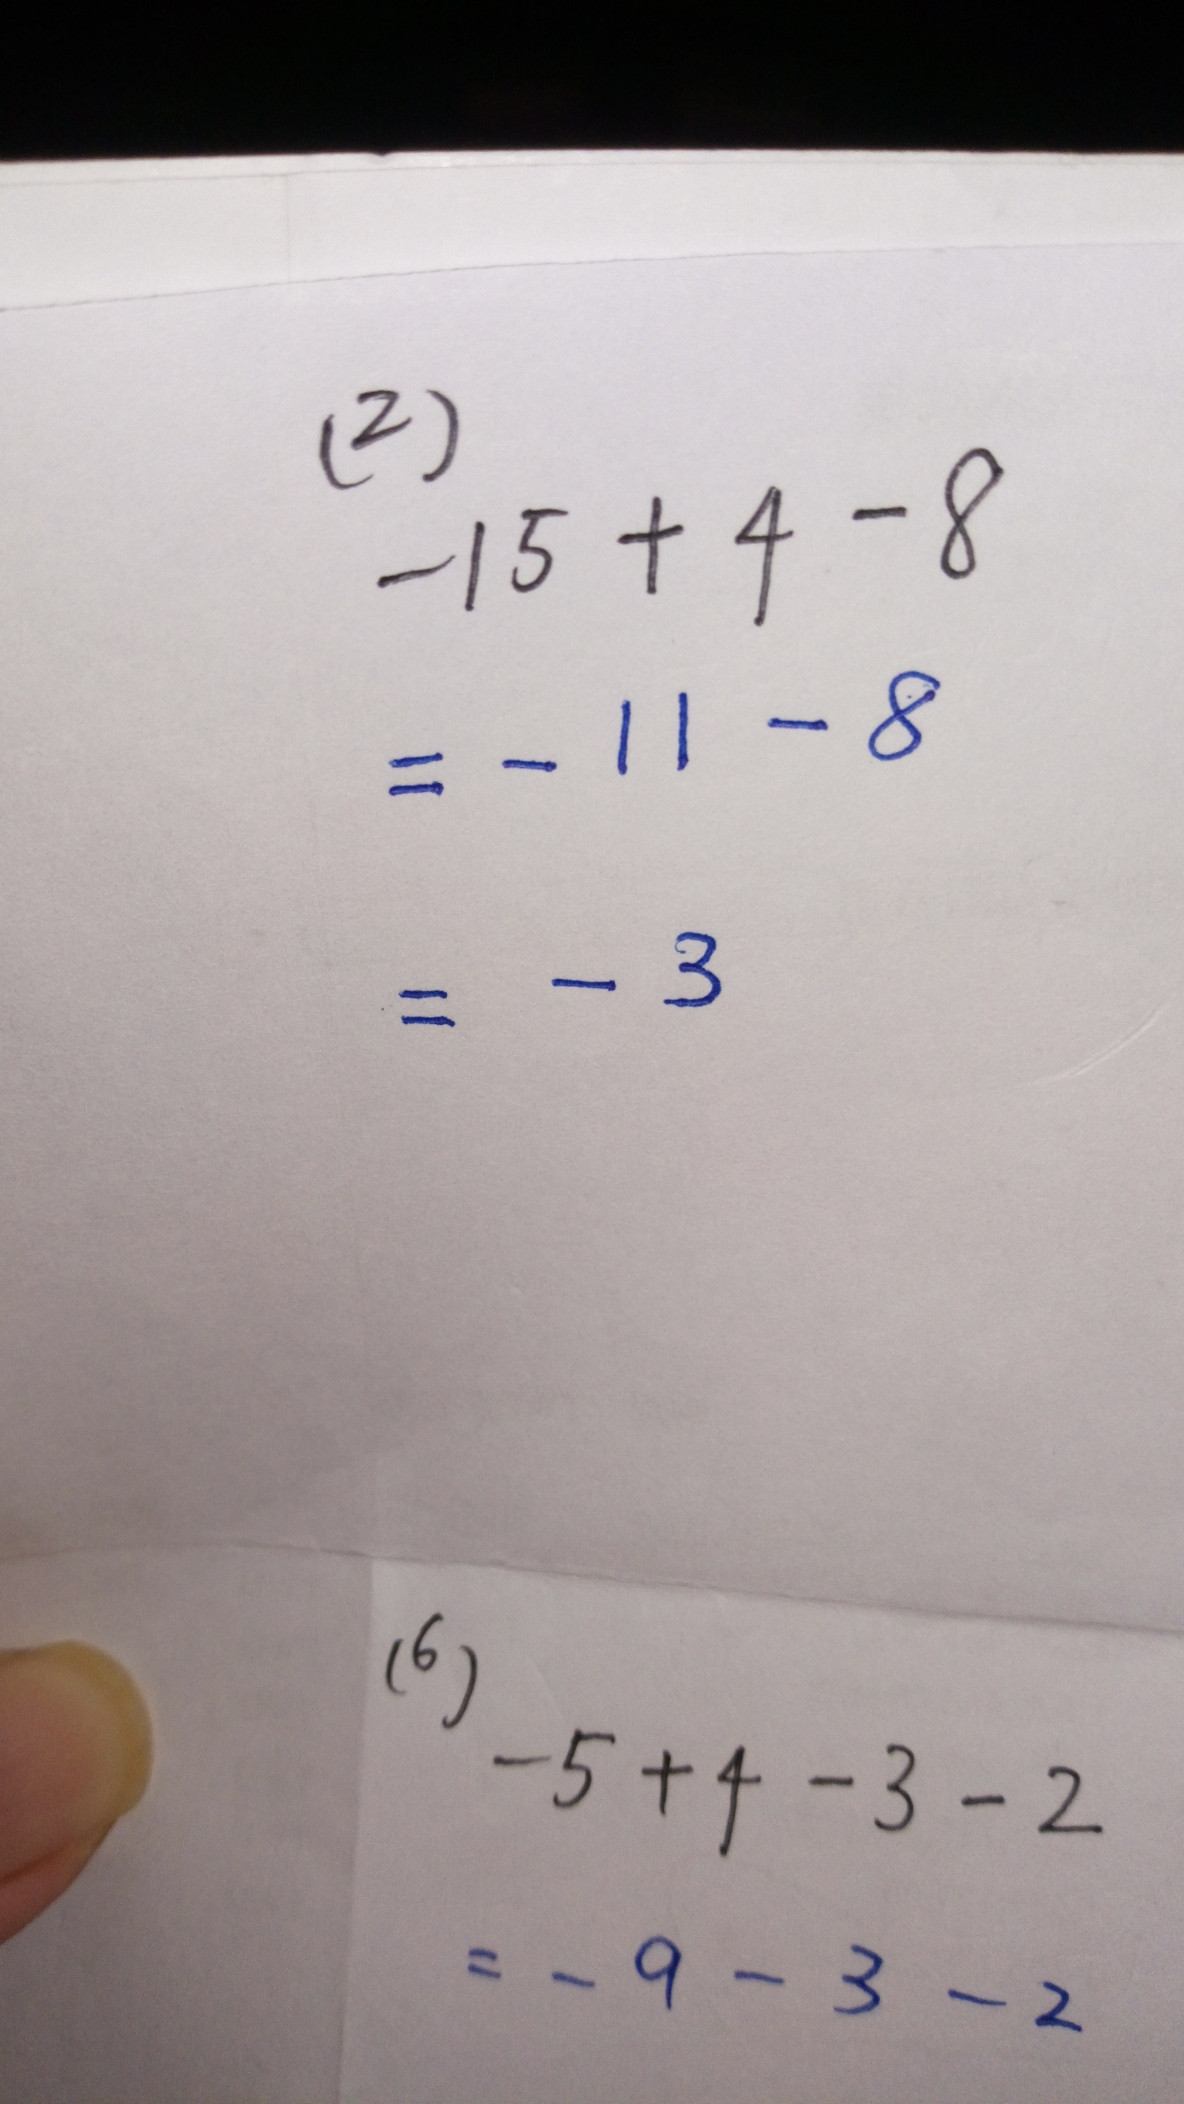 (2)
-15 + 4 - 8
= - 11 - 8
= - 3
(6)
-5 + 4 - 3 - 2
= - 9 - 3 - 2